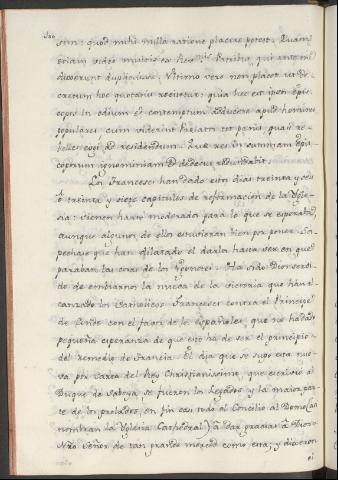 sim: quod mihi nulla ratione placere potest. Quam
etiam video multis ex Rev.mis Patribus, qui ante me
dixerunt displicuisse. Vltimo vero non placet ut de-
cretum hoc quotannis: quia hoc est ipsos Epis-
copos in odium et contemptum adducere apud homines
populares, cum viderint Prelatos toties quasi re-
belles cogi ad residendum. Quae res in omnium Epis-
coporum ignominiam et dedecus redundabit.
Los Franceses han dado estos dias treinta y seis
ô treinta y siete capitulos de reformacion de la Ygle-
sia: vienen harto moderados para lo que se esperaba,
aunque algunos de ellos estuvieran bien por poner. Sos-
pechase que han dilatado el darla hasta ver en que
paraban las cosas de los Ygonotes. Ha sido Dios servi-
do de embiarnos la nueva de la victoria que han al-
canzado los Catholicos Franceses contra el Principe
de Conde con el favor de los Españoles, que no ha dado
pequeña esperanza de que esto ha de ser el principio
del remedio de Francia. El dia que se supo esta nue-
va por carta del Rey Christianissimo, que escribió al
Duque de Saboya, se fueron los Legados y la maior par-
te de los prelados, en fin casi todo el Concilio al Domo (asi
nombran la Yglesia Cathedral) à dar gracias à Dios
Nro Señor de tan grande merced como esta; y dixeron
el